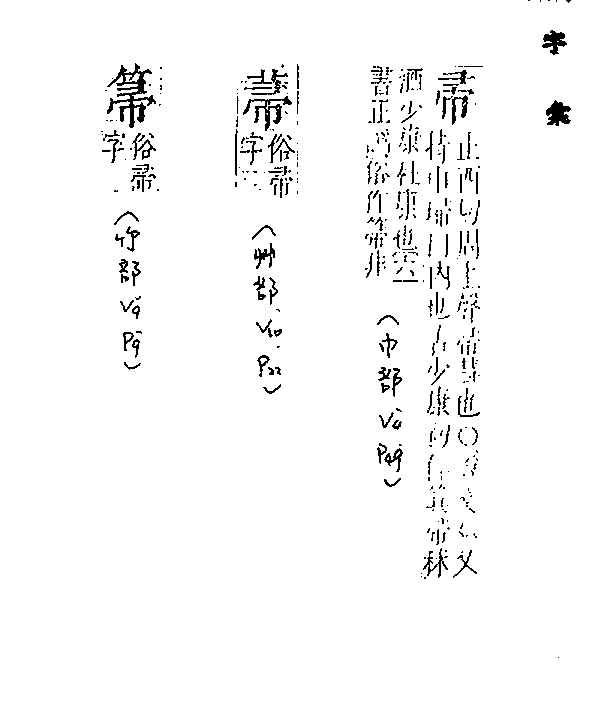 字彙
帚
止酉切周上聲帚彗也○又
持巾埽冂內也古少康初作箕帚秫
酒少康杜康也六
書正譌俗作箒非
(巾部 V4 P49)
菷
俗帚
字
(艸部 V10 P22)
箒
俗帚
字
(竹部 V9 P9)